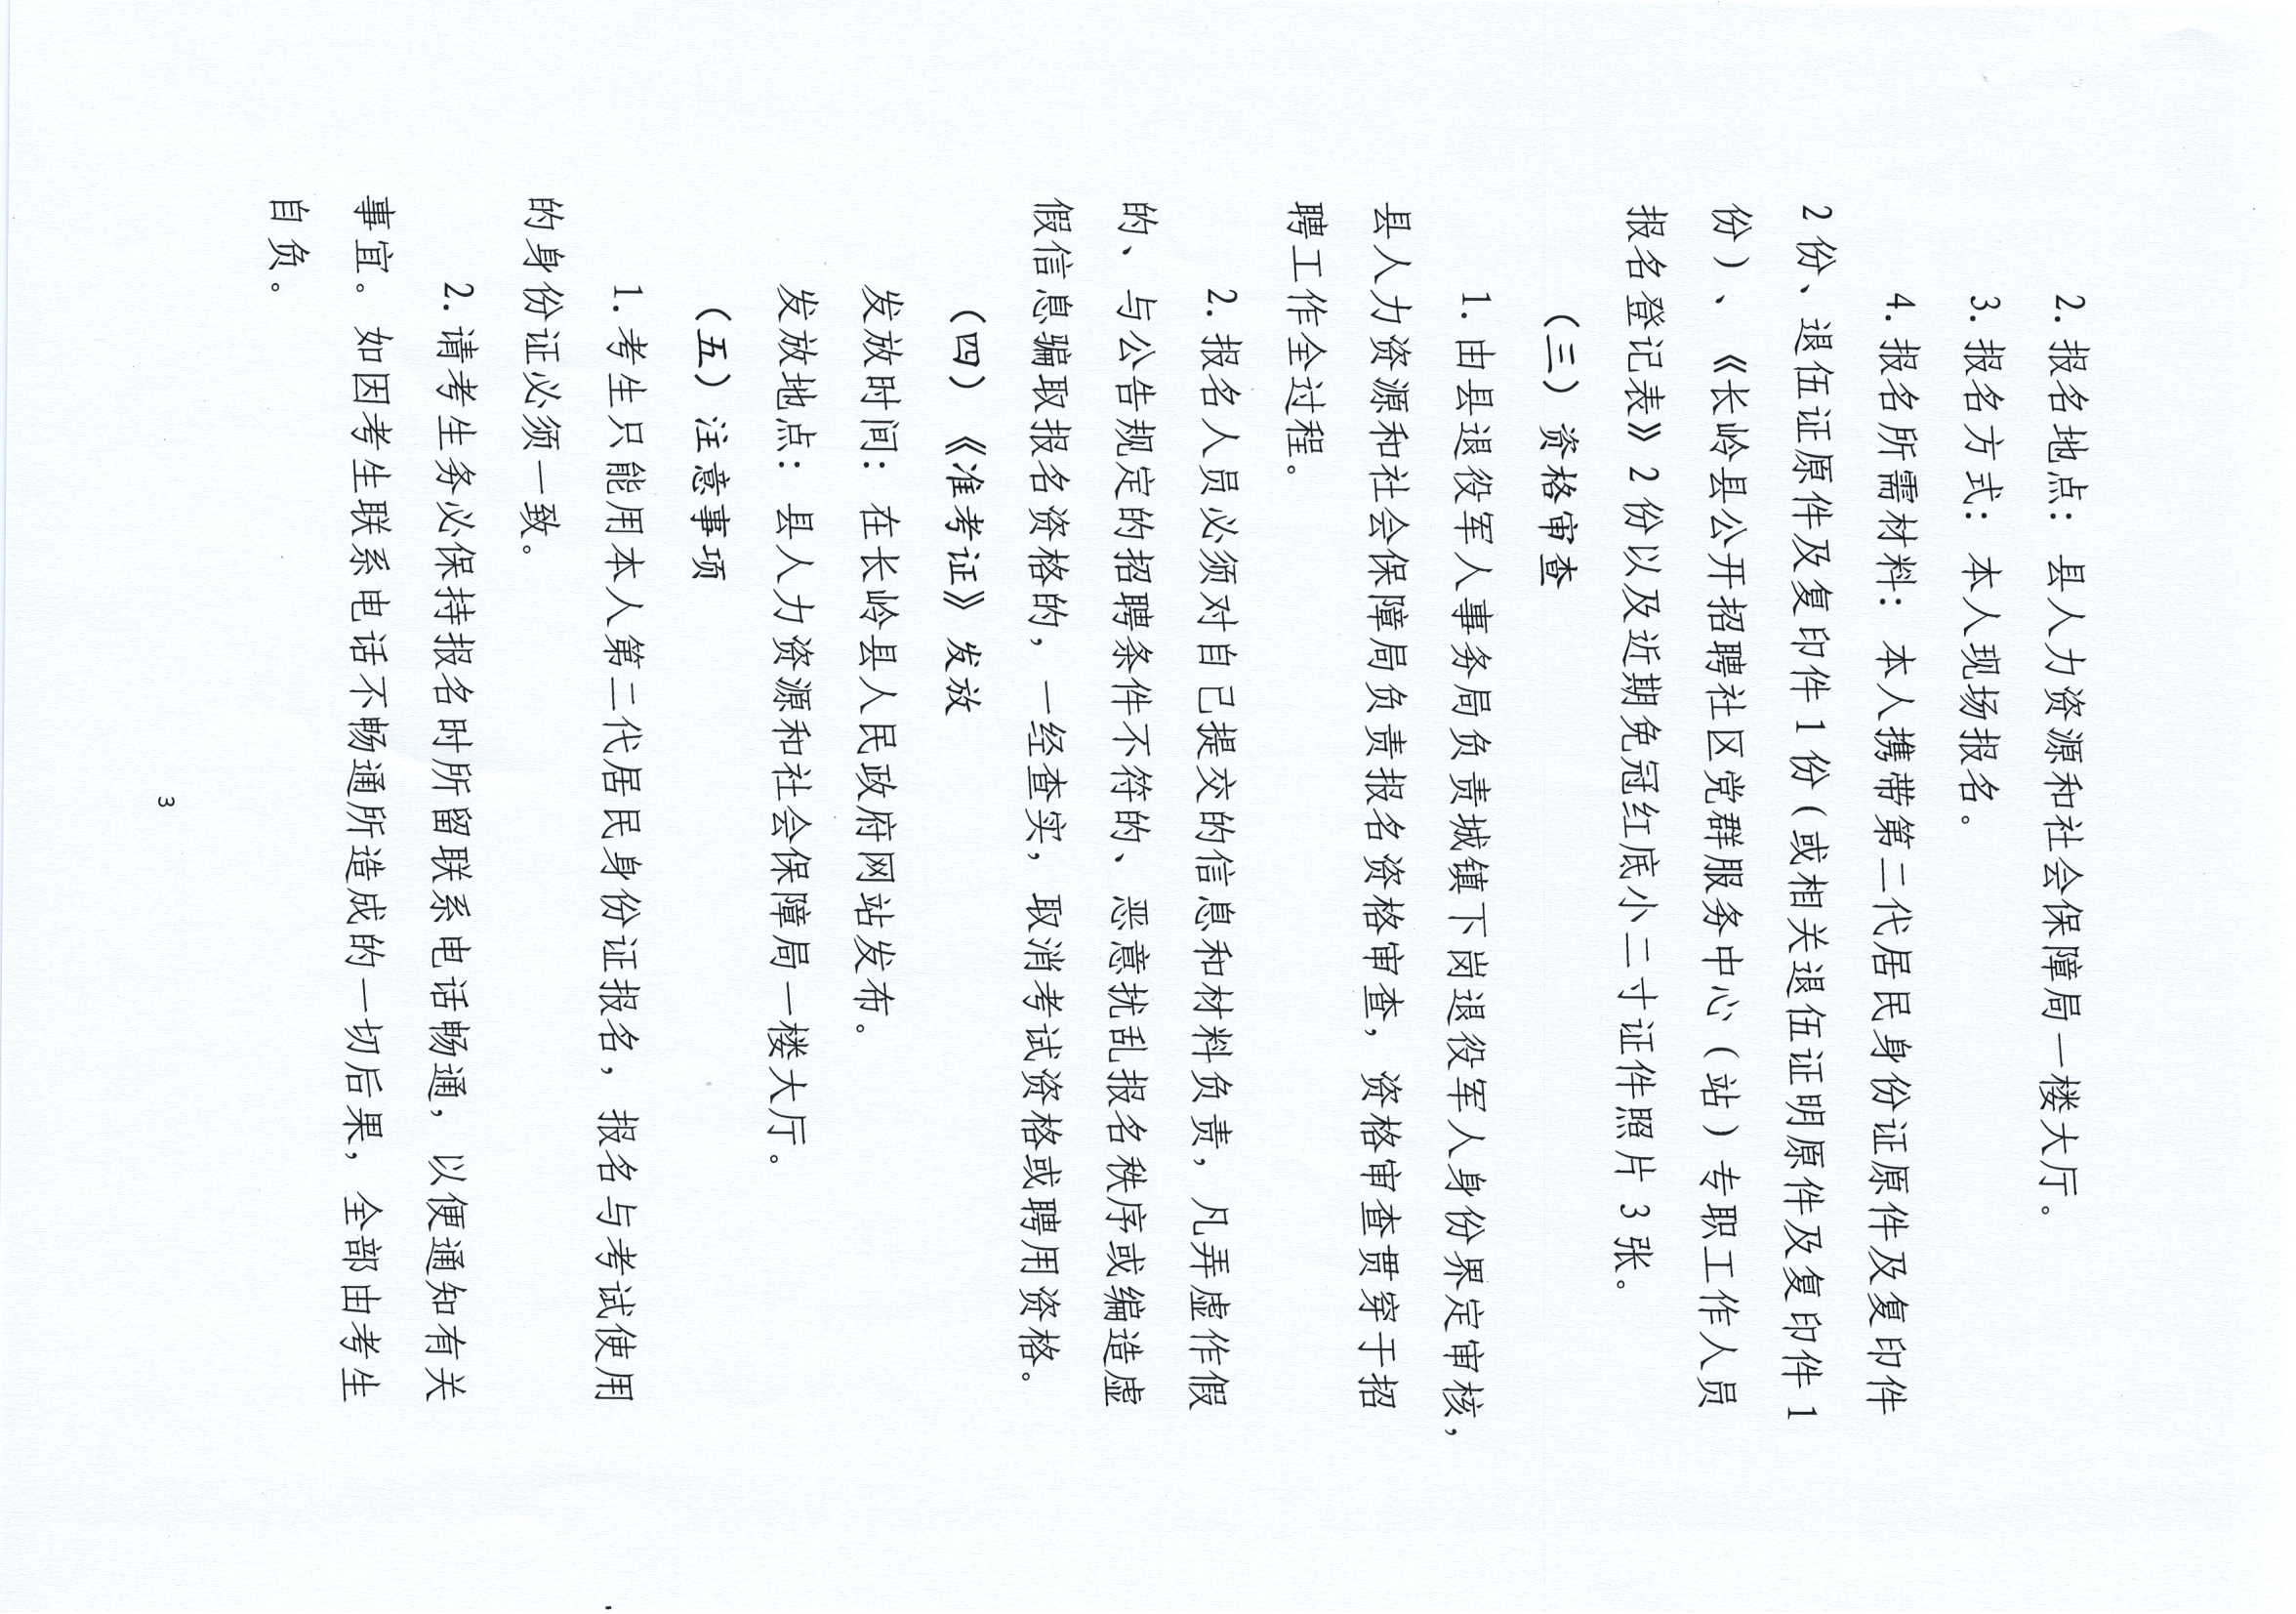 2. 报名地点：县人力资源和社会保障局一楼大厅。
3. 报名方式：本人现场报名。
4. 报名所需材料：本人携带第二代居民身份证原件及复印件
2 份、退伍证原件及复印件 1 份（或相关退伍证明原件及复印件 1
份）、《长岭县公开招聘社区党群服务中心（站）专职工作人员
报名登记表》2 份以及近期免冠红底小二寸证件照片 3 张。
（三）资格审查
1. 由县退役军人事务局负责城镇下岗退役军人身份界定审核，
县人力资源和社会保障局负责报名资格审查，资格审查贯穿于招
聘工作全过程。
2. 报名人员必须对自己提交的信息和材料负责，凡弄虚作假
的、与公告规定的招聘条件不符的、恶意扰乱报名秩序或编造虚
假信息骗取报名资格的，一经查实，取消考试资格或聘用资格。
（四）《准考证》发放
发放时间：在长岭县人民政府网站发布。
发放地点：县人力资源和社会保障局一楼大厅。
（五）注意事项
1. 考生只能用本人第二代居民身份证报名，报名与考试使用
的身份证必须一致。
2. 请考生务必保持报名时所留联系电话畅通，以便通知有关
事宜。如因考生联系电话不畅通所造成的一切后果，全部由考生
自负。
3